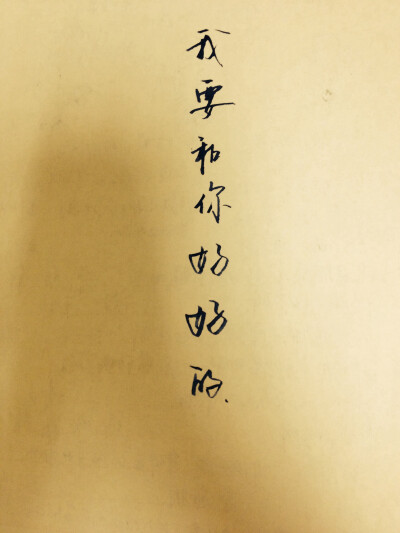 我要和你好好的.